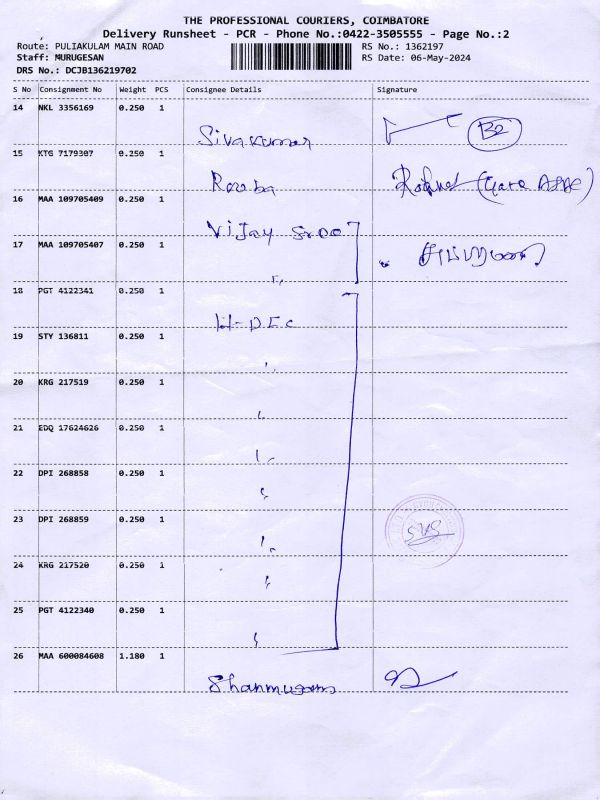 THE PROFESSIONAL COURIERS, COIMBATORE
Delivery Runsheet - PCR - Phone No.:0422-3505555 - Page No.:2
Route: PULIAKULAM MAIN ROAD RS No.: 1362197
Staff: MURUGESAN RS Date: 06-May-2024
DRS No.: DCJB136219702
S No Consignment No Weight PCS Consignee Details Signature
14 NKL 3356169 0.250 1
Sivakumar B2
15 KTG 7179307 0.250 1
16 MAA 109705409 0.250 1
Vijay
17 MAA 109705407 0.250 1
18 PGT 4122341 0.250 1
H-DFC
19 STY 136811 0.250 1
20 KRG 217519 0.250 1
21 EDQ 17624626 0.250 1
22 DPI 268858 0.250 1
23 DPI 268859 0.250 1
24 KRG 217520 0.250 1
25 PGT 4122340 0.250 1
26 MAA 600084608 1.180 1
Shanmugam